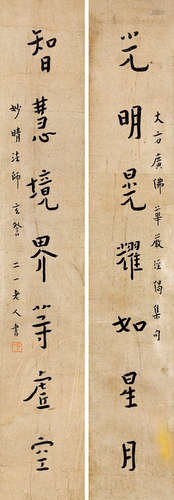 大方廣佛華嚴經偈集句
光明晃耀如星月
智慧境界等虛空
妙晴法師玄詧 二一老人書